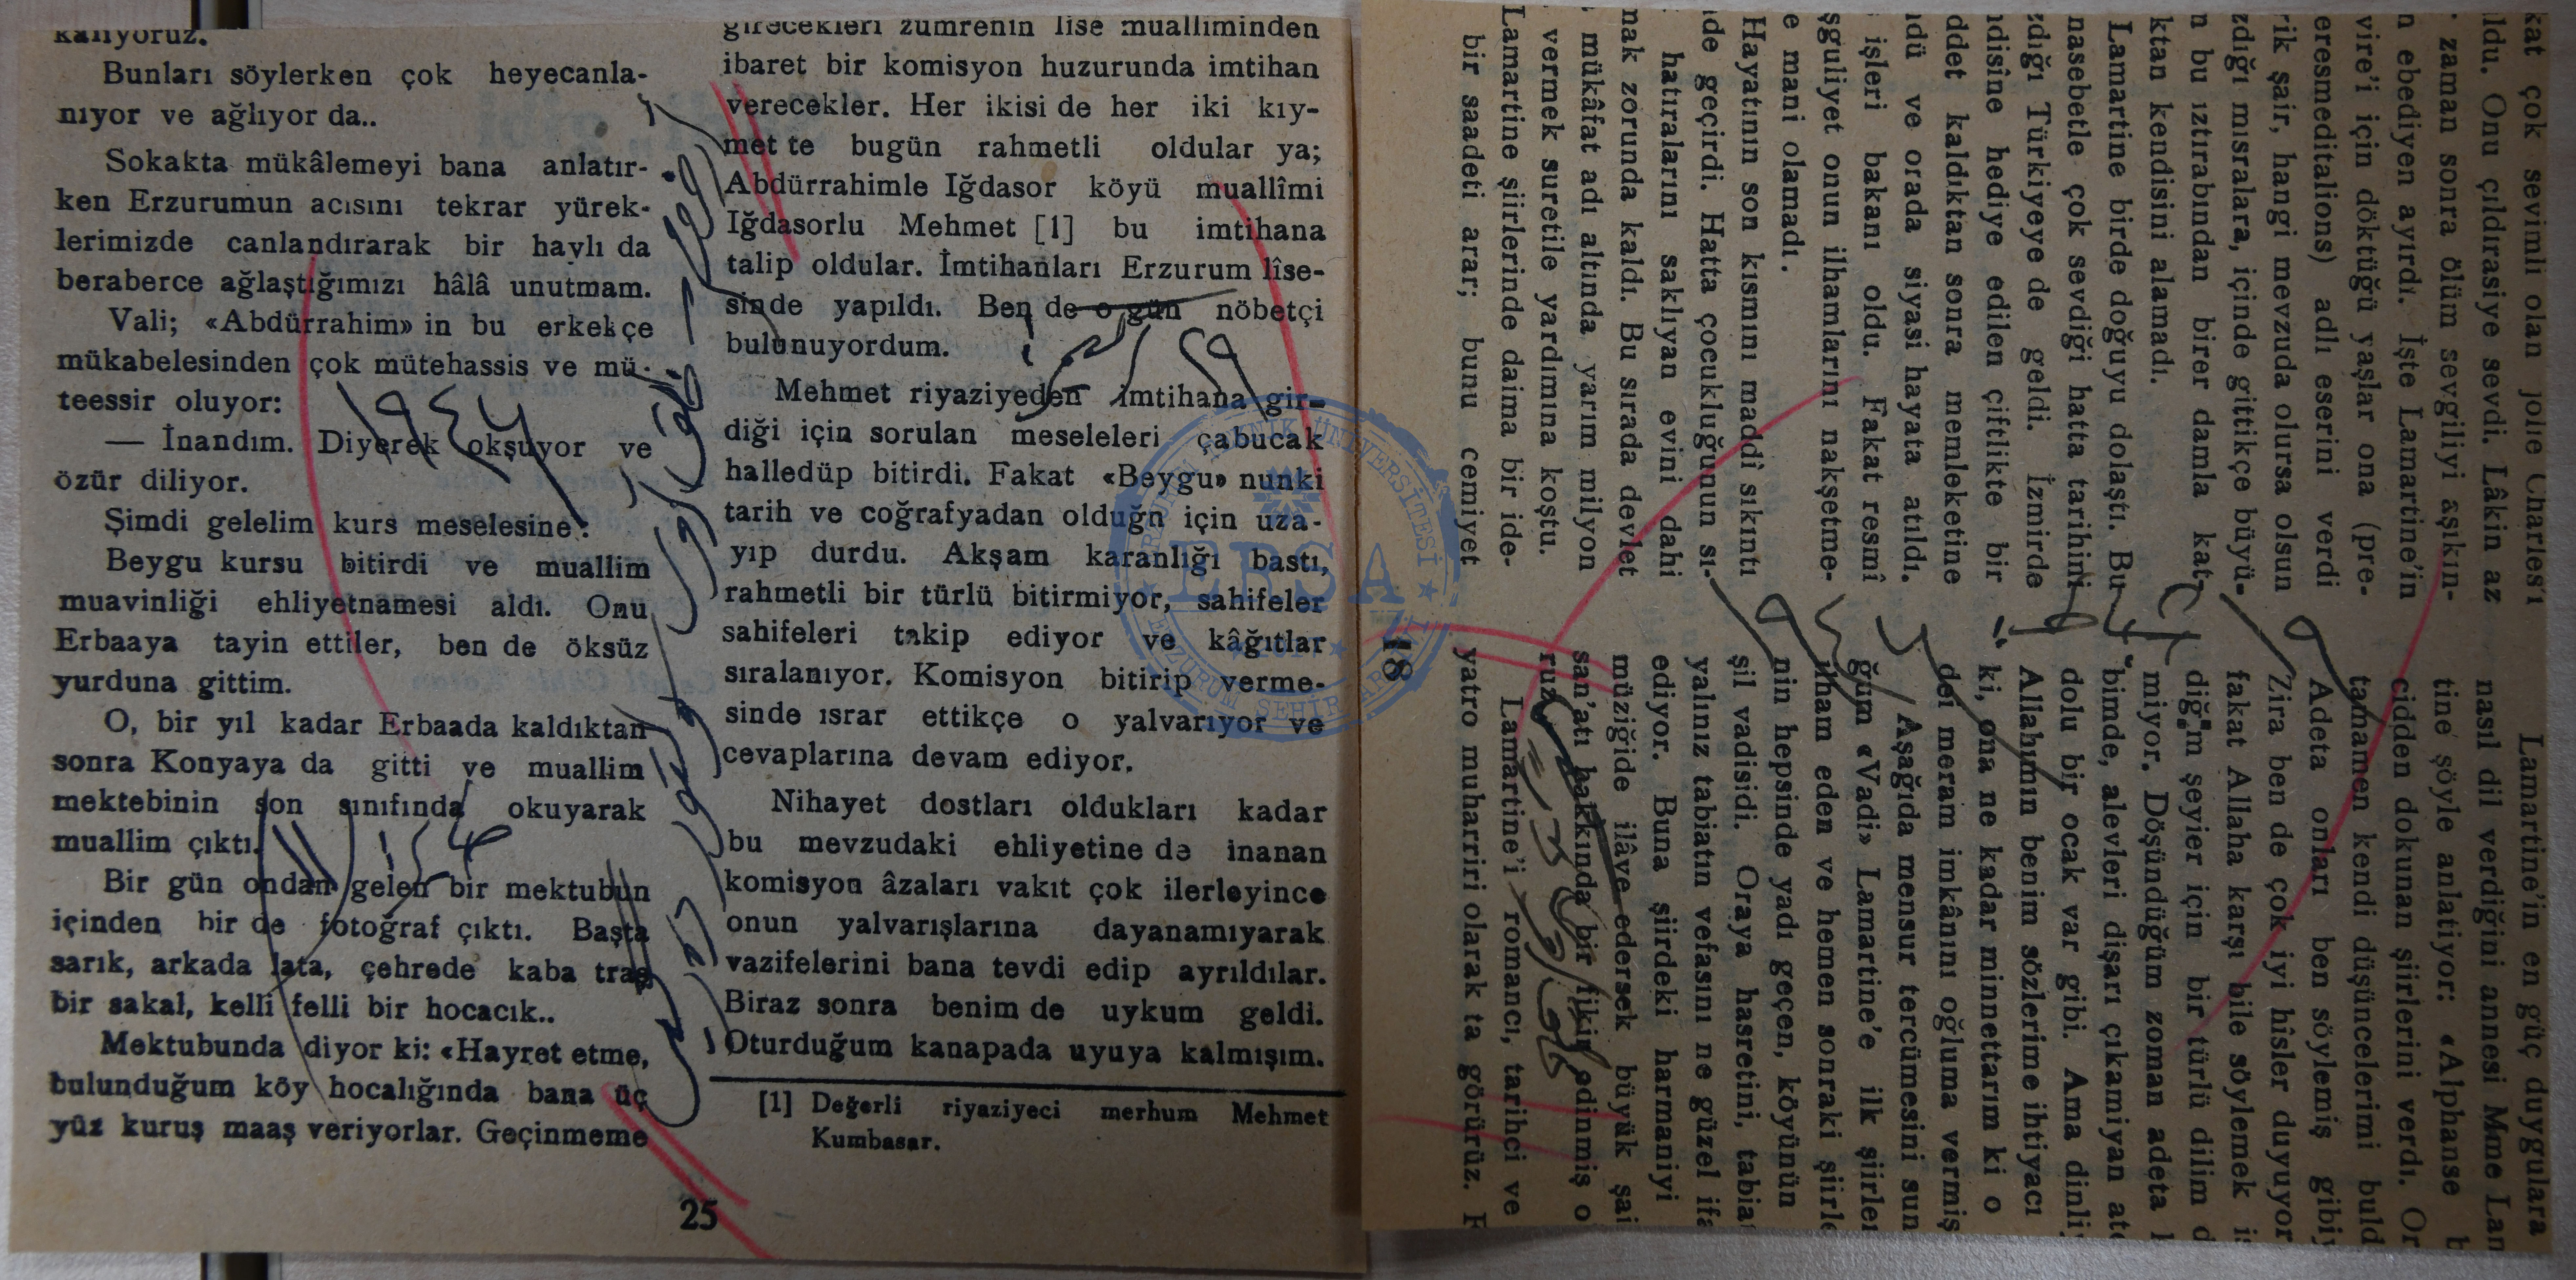 kalıyoruz.
Bunları söylerken çok heyecanla-
nıyor ve ağlıyor da..
Sokakta mükâlemeyi bana anlatır-
ken Erzurumun acısını tekrar yürek-
lerimizde canlandırarak bir haylı da
beraberce ağlaştığımızı hâlâ unutmam.
Vali; «Abdürrahim» in bu erkekçe
mükabelesinden çok mütehassis ve mü-
teessir oluyor:
— İnandım. Diyerek okşuyor ve
özür diliyor.
Şimdi gelelim kurs meselesine:
Beygu kursu bitirdi ve muallim
muavinliği ehliyetnamesi aldı. Onu
Erbaaya tayin ettiler, ben de öksüz
yurduna gittim.
O, bir yıl kadar Erbaada kaldıktan
sonra Konyaya da gitti ve muallim
mektebinin son sınıfında okuyarak
muallim çıktı.
Bir gün ondan gelen bir mektubun
içinden bir de fotoğraf çıktı. Başta
sarık, arkada lata, çehrede kaba traş
bir sakal, kelli felli bir hocacık..
Mektubunda diyor ki: «Hayret etme,
bulunduğum köy hocalığında bana üç
yüz kuruş maaş veriyorlar. Geçinmeme
25
girecekleri zümrenin lise muallıminden
ibaret bir komisyon huzurunda imtihan
verecekler. Her ikisi de her iki kıy-
met te bugün rahmetli oldular ya;
Abdürrahimle Iğdasor köyü muallîmi
Iğdasorlu Mehmet [1] bu imtihana
talip oldular. İmtihanları Erzurum lîse-
sinde yapıldı. Ben de o gün nöbetçi
bulunuyordum.
Mehmet riyaziyeden imtihana gir-
diği için sorulan meseleleri çabucak
halledüp bitirdi. Fakat «Beygu» nunki
tarih ve coğrafyadan olduğn için uza-
yıp durdu. Akşam karanlığı bastı,
rahmetli bir türlü bitirmiyor, sahifeler
sahifeleri takip ediyor ve kâğıtlar
sıralanıyor. Komisyon bitirip verme-
sinde ısrar ettikçe o yalvarıyor ve
cevaplarına devam ediyor.
Nihayet dostları oldukları kadar
bu mevzudaki ehliyetine de inanan
komisyon âzaları vakıt çok ilerleyince
onun yalvarışlarına dayanamıyarak
vazifelerini bana tevdi edip ayrıldılar.
Biraz sonra benim de uykum geldi.
Oturduğum kanapada uyuya kalmışım.
[1] Değerli riyaziyeci merhum Mehmet
Kumbasar.
kat çok sevimli olan jolie Charles'i
ldu. Onu çıldırasiye sevdi. Lâkin az
zaman sonra ölüm sevgiliyi aşıkın-
n ebediyen ayırdı. İşte Lamartine'in
vire'i için döktüğü yaşlar ona (pre-
eresmeditalions) adlı eserini verdi
rik şair, hangi mevzuda olursa olsun
zdığı mısralara, içinde gittikçe büyü-
n bu ıztırabından birer damla kat-
ktan kendisini alamadı.
Lamartine birde doğuyu dolaştı. Bu
nasebetle çok sevdiği hatta tarihini
zdığı Türkiyeye de geldi. İzmirde
ndisîne hediye edilen çiftlikte bir
ddet kaldıktan sonra memleketine
ndü ve orada siyasi hayata atıldı.
işleri bakanı oldu. Fakat resmî
şguliyet onun ilhamlarını nakşetme-
e mani olamadı.
Hayatının son kısmını maddî sıkıntı
de geçirdi. Hatta çocukluğunun sı-
hatıralarını saklıyan evini dahi
mak zorunda kaldı. Bu sırada devlet
mükâfat adı altında yarım milyon
vermek suretile yardımına koştu.
Lamartine şiirlerinde daima bir ide-
bir saadeti arar; bunu cemiyet
18
Lamartine'in en güç duygulara
nasıl dil verdiğini annesi Mme Lan
tine şöyle anlatiyor: «Alphanse b
cidden dokunan şiirlerini verdı. Or
tamamen kendi düşüncelerimi buld
Adeta onları ben söylemiş gibiy
Zira ben de çok iyi hîsler duyuyor
fakat Allaha karşı bile söylemek i
diğim şeyier için bir türlü dilim d
miyor. Döşündüğüm zoman adeta
bimde, alevleri dişarı çıkamiyan at
dolu bir ocak var gibi. Ama dinli
Allahının benim sözlerime ihtiyacı
ki, ona ne kadar minnettarım ki o
dei meram imkânını oğluma vermiş
Aşağıda mensur tercümesini sun
ğum «Vadi» Lamartine'e ilk şiirler
ilham eden ve hemen sonraki şiirle
nin hepsinde yadı geçen, köyünün
şil vadisidi. Oraya hasretini, tabia
yalınız tabiatın vefasını ne güzel ifa
ediyor. Buna şiirdeki harmaniyi
müziğide ilâve edersek büyük şai
san'atı hakkında bir fikir edinmiş o
ruz.
Lamartine'i romancı, tarihci ve
yatro muharriri olarak ta görürüz. F
ERZURUM TEKNİK ÜNİVERSİTESİ
ERŞA
ERZURUM ŞEHİR ARŞİVİ